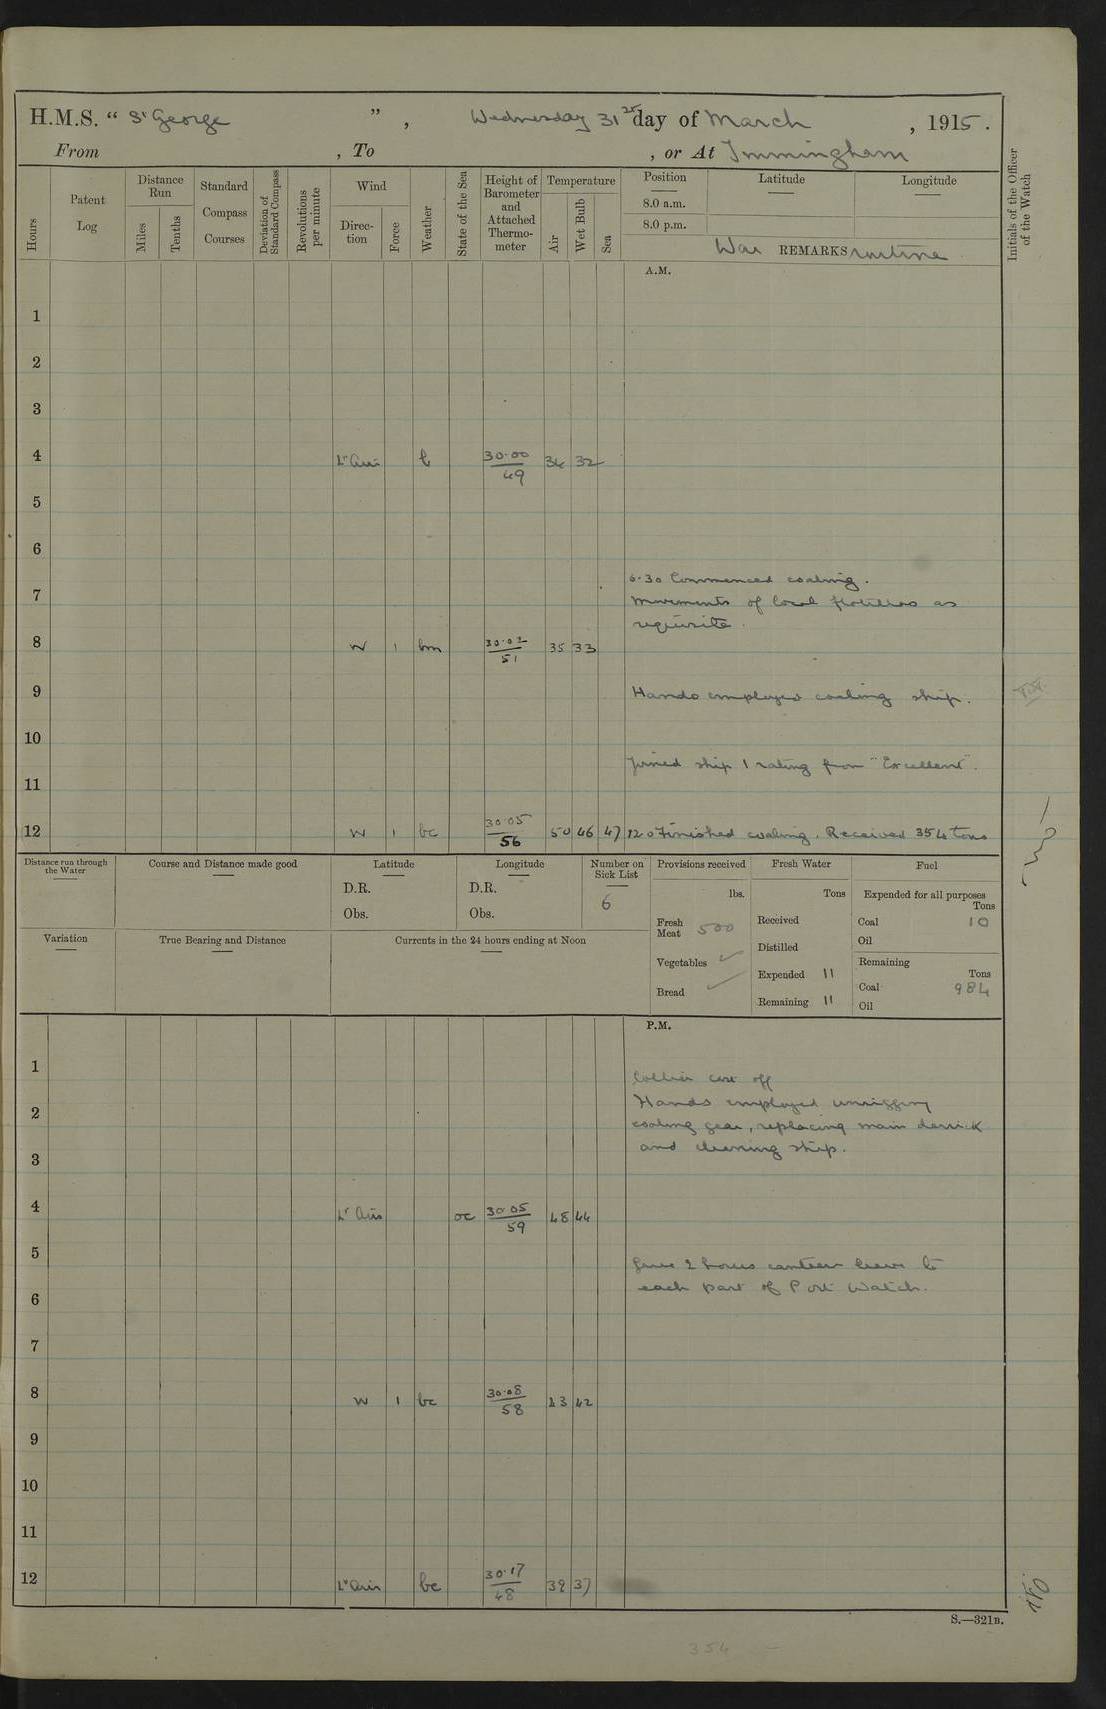 H.M.S. " St George ", Wednesday 31st day of March, 1915.
From , To , or At Immingham
Hours
Patent Log
Distance Run
Miles
Tenths
Standard Compass Courses
Deviation of Standard Compass
Revolutions per minute
Wind
Direction
Force
Weather
State of the Sea
Height of Barometer and Attached Thermometer
Temperature
Air
Wet Bulb
Sea
Position
Latitude
Longitude
8.0 a.m.
8.0 p.m.
War REMARKS routine
Initials of the Officer of the Watch
A.M.
1
2
3
4 Lt airs b 30.00 34 32
49
5
6
6.30 Commenced coaling.
7 Movements of local flotillas as
requisite.
8 W 1 bm 30.02 35 33
51
9 Hands employed coaling ship.
10
Joined ship 1 rating from "Excellent".
11
12 W 1 bc 30.05 50 46 47 12.0 Finished coaling. Received 354 tons
56
Distance run through the Water
Course and Distance made good
Latitude
D.R.
Obs.
Longitude
D.R.
Obs.
Number on Sick List
6
Provisions received
lbs.
Fresh Meat 500
Vegetables ✓
Bread ✓
Fresh Water
Tons
Received
Distilled
Expended 11
Remaining 11
Fuel
Expended for all purposes
Tons
Coal 10
Oil
Remaining
Tons
Coal 984
Oil
Variation
True Bearing and Distance
Currents in the 24 hours ending at Noon
P.M.
1
Collier cast off
2 Hands employed unrigging
coaling gear, replacing main derrick
3 and cleaning ship.
4 Lt airs oc 30.05 48 44
59
5
Gave 2 hours canteen leave to
6 each part of Port Watch.
7
8 W 1 bc 30.08 43 42
58
9
10
11
12 Lt airs bc 30.17 39 37
48
S.—321B.
354